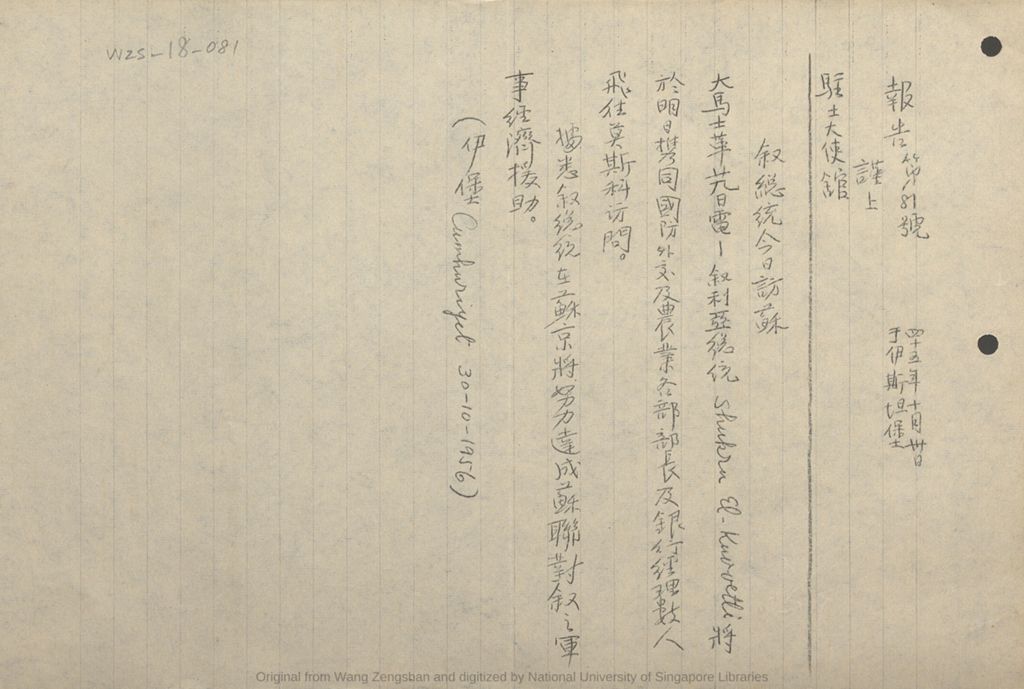 WZS-18-081
報告第81號
四十五年十月卅日
于伊斯坦堡
謹上
駐土大使館
叙總統今日訪蘇
大馬士革廿九日電—叙利亞總統 Shukru El-Kuvvetli 將
於明日携同國防外交及農業各部部長及銀行經理數人
飛往莫斯科访問。
據悉叙總統在蘇京將努力達成蘇聯對叙之軍
事經濟援助。
(伊堡 Cumhuriyet 30-10-1956)
Original from Wang Zengsban and digitized by National University of Singapore Libraries